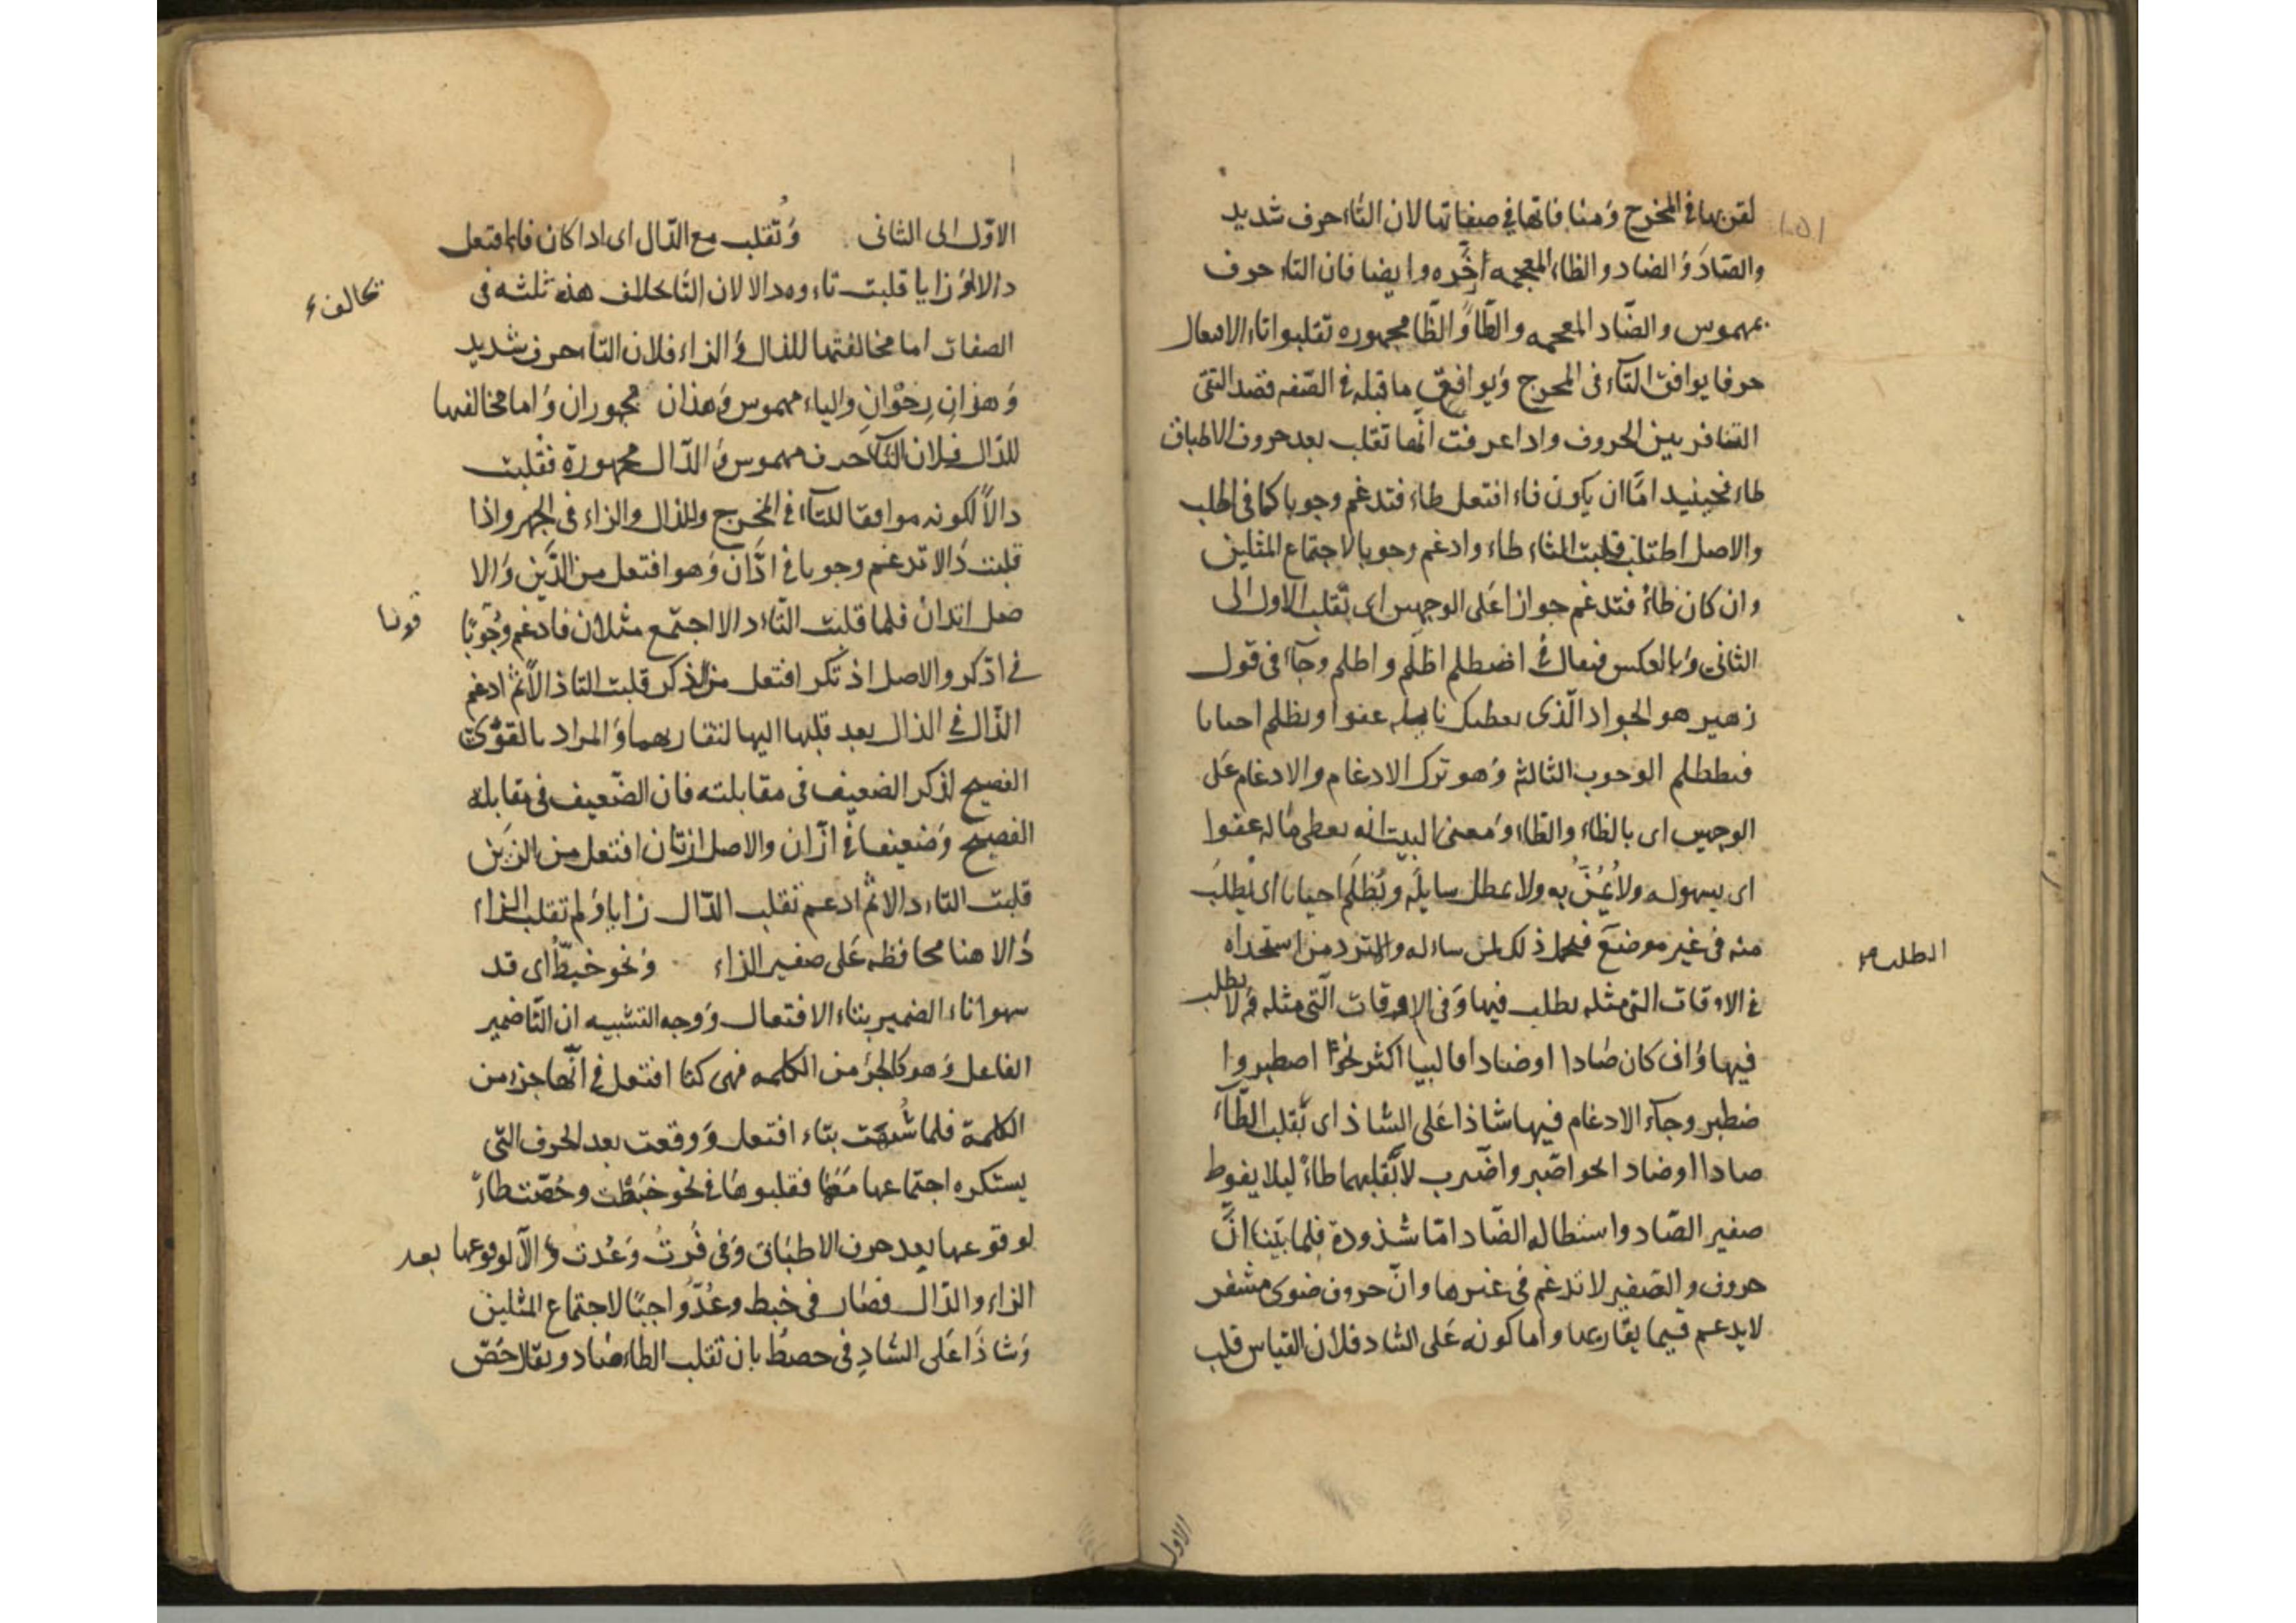 لقربها فى المخرج ومنافاتها في صفاتها لان التاء حرف شديد
والصّاد والضاد والظاء المعجمه اخره وايضا فان التاء حرف
مهموس والضّاد المعجمه والطّا والظّا مجهوره تقلبوا تاء الافتعال
حرفا يوافق التآء فى المخرج ويوافق ما قبله في الصّفه قصد
التنافر بين الحروف واذا عرفت انّها تقلب بعد حروف الاطباق
طاء فحينيد امّا ان يكون فاء افتعل طاء فتدغم وجوبا كما فى اطلب
والاصل اطتلب قلبت التاء طاء وادغم وجوبا لاجتماع المثلين
وان كان ظاء فتدغم جوازا على الوجهين اى تقلب الاول الى
الثانى وبالعكس فيقال في اضطلم اظلم واطلم وجآء فى قول
زهير هو الجواد الّذى يعطيك نايله عفوا ويظلم احيانا
فيظطلم الوجوب الثالث وهو ترك الادغام والادغام على
الوجهين اى بالظاء والطاء ومعنى البيت انه يعطى ماله عفوا
اى بسهوله ولا يمنّ به ولا يمطل سايله ويُظلم احيانا اى يُطلب
منه فى غير موضع فيحمل ذلك لمن ساله والترد من استجداه
الطلب
في الاوقات التى مثله يطلب فيها وفى الاوقات الّتى مثله لا يطلب
فيها وان كان صادا او ضادا فا لبيا اكثر نحو اصطبر وا
ضطبر وجآء الادغام فيها شاذا على الشاذ اى تقلب الطّآء
صادا او ضادا نحو اصّبر واضّرب لا تقلبهما طاءً ليلا يفوط
صفير الصّاد واستطاله الضّاد امّا شذوذة فلما بيّنا انّ
حروف والصفير لا تدغم فى غيرها وانّ حروف ضوى مشفر
لا يدغم فيما يقاربها واما كونه على الشاذ فلان القياس قلب
الاول
الاوّل الى الثانى وتقلب مع الدّال اى اذا كان فاء افتعل
دالا او زايا قلبت تاءوه دالا لان التا بخلاف هذه ثلثه فى
تخالف
الصفات اما مخالفتها للذال و الزاء فلان التاء حرف شديد
وهذان رخوان والياء مهموس وهذان مجهوران واما مخالفها
للدّال فلان التآء حرف مهموس والدّال مجهورة فقلبت
دالاً لكونه موافقا للتآء في المخرج وللذال والزاء فى الجهر واذا
قلبت دالا تدغم وجوبا في ادّان وهو افتعل من الدّين والا
صل ادتان فلما قلبت التاء دالا اجتمع مثلان فادغم وجوبًا
قويا
في ادّكر والاصل اذتكر افتعل من الذكر قلبت التا دالاً ثم ادغم
الذّال في الدال بعد قلبها اليها لتقاربهما والمراد بالقوّى
الفصيح لذكر الضعيف فى مقابلته فان الضّعيف فى مقابله
الفصيح وضعيفا في ازّان والاصل ازتان افتعل من الزين
قلبت التاء دالا ثم ادغم تقلب الدّال زايا ولم تقلب الزاء
دالا هنا محافظه على صفير الزاء ونحو خبطّ اى قد
سهوا تاء الضمير بتاء الافتعال ووجه التشبيه ان التّا ضمير
الفاعل وهو كالجزء من الكلمه فهى كتا افتعل في انّها جزء من
الكلمة فلما شُبّهت بتاء افتعل ووقعت بعد الحرف التى
يستكره اجتماعها معها فقلبوها في نحو خبطت وحُصت طاءً
لوقوعها بعد حرف الاطباق وفى فُزت وعُدت دالاً لوقوعها بعد
الزاء والدّال فصار فى خبط وعُدّ واجبًا لاجتماع المثلين
وشاذا على الشاذ فى حصط بان تقلب الطاء صاد ويقال حصّ